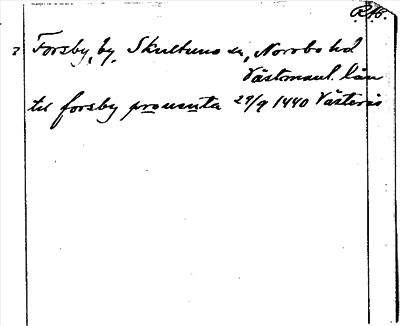 RAp.
? Forsby, by, Skultuna sn, Norrbo hd
Västmanl. län
til forsby prouenta 29/9 1440 Västerås